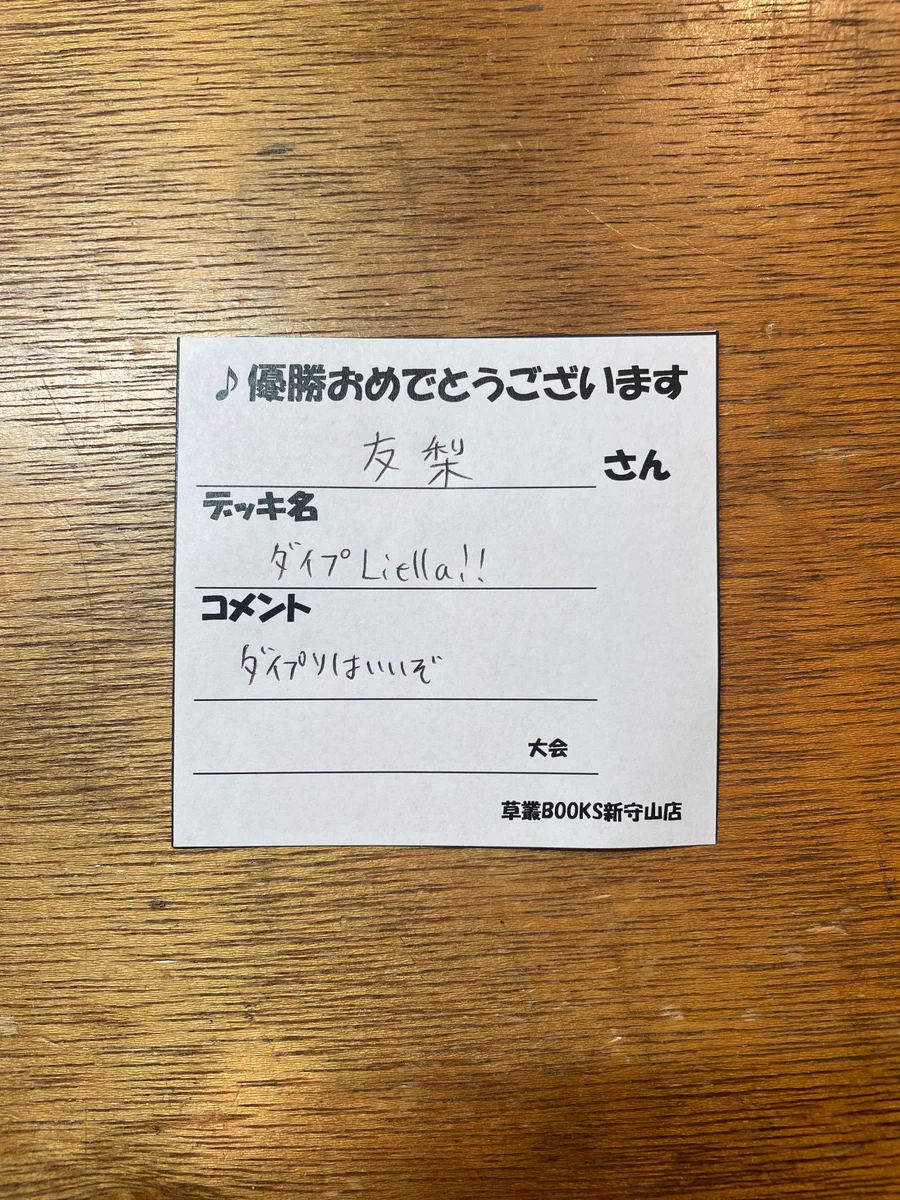 ♪優勝おめでとうございます
友梨 さん
デッキ名
ダイプLiella!!
コメント
ダイプリはいいぞ
大会
草叢BOOKS新守山店